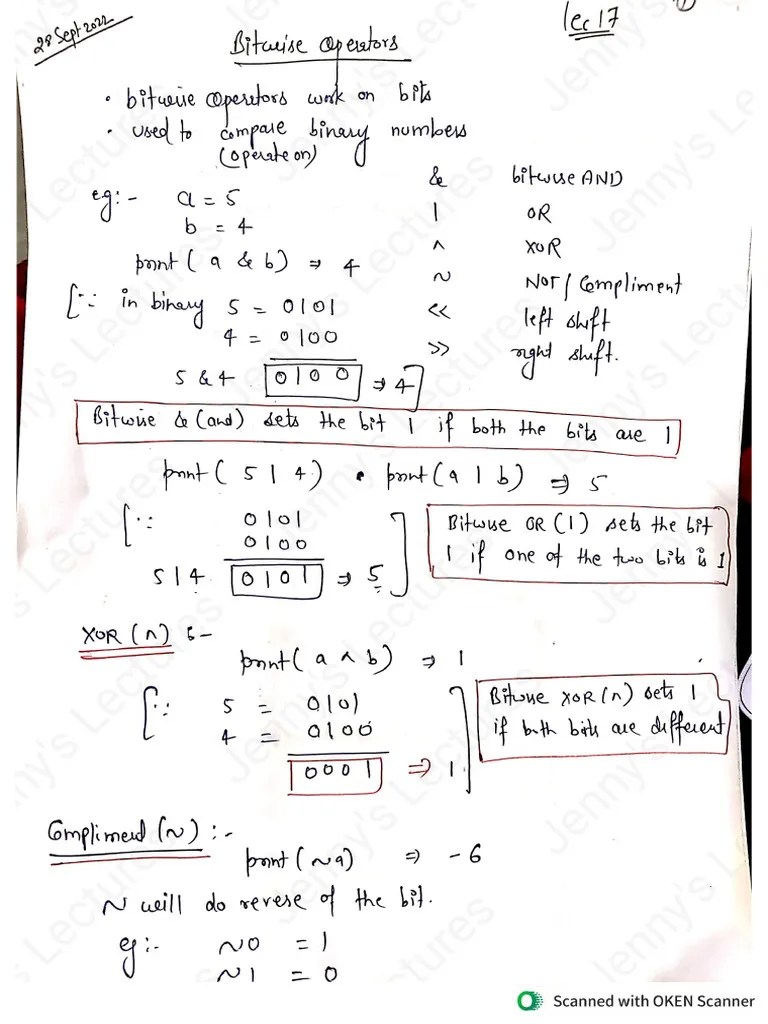 28 Sept 2022
Lec 17
1
Bitwise Operators
• bitwise operators work on bits
• used to compare binary numbers
(operate on)
eg:- a = 5
b = 4
print( a & b) ⇒ 4
[∵ in binary 5 = 0101
4 = 0100
5 & 4 0100 ⇒ 4]
& bitwise AND
| OR
^ XOR
~ NOT / Compliment
<< left shift
>> right shift.
Bitwise & (and) sets the bit 1 if both the bits are 1
print( 5 | 4 ) • print( a | b) ⇒ 5
[∵ 0101
0100
5 | 4 0101 ⇒ 5]
Bitwise OR (|) sets the bit
1 if one of the two bits is 1
XOR (^) :-
print( a ^ b) ⇒ 1
[∵ 5 = 0101
4 = 0100
0001 ⇒ 1]
Bitwise XOR (^) sets 1
if both bits are different
Compliment (~) :-
print( ~a) ⇒ -6
~ will do reverse of the bit.
eg:- ~0 = 1
~1 = 0
Jenny's Lectures
Scanned with OKEN Scanner